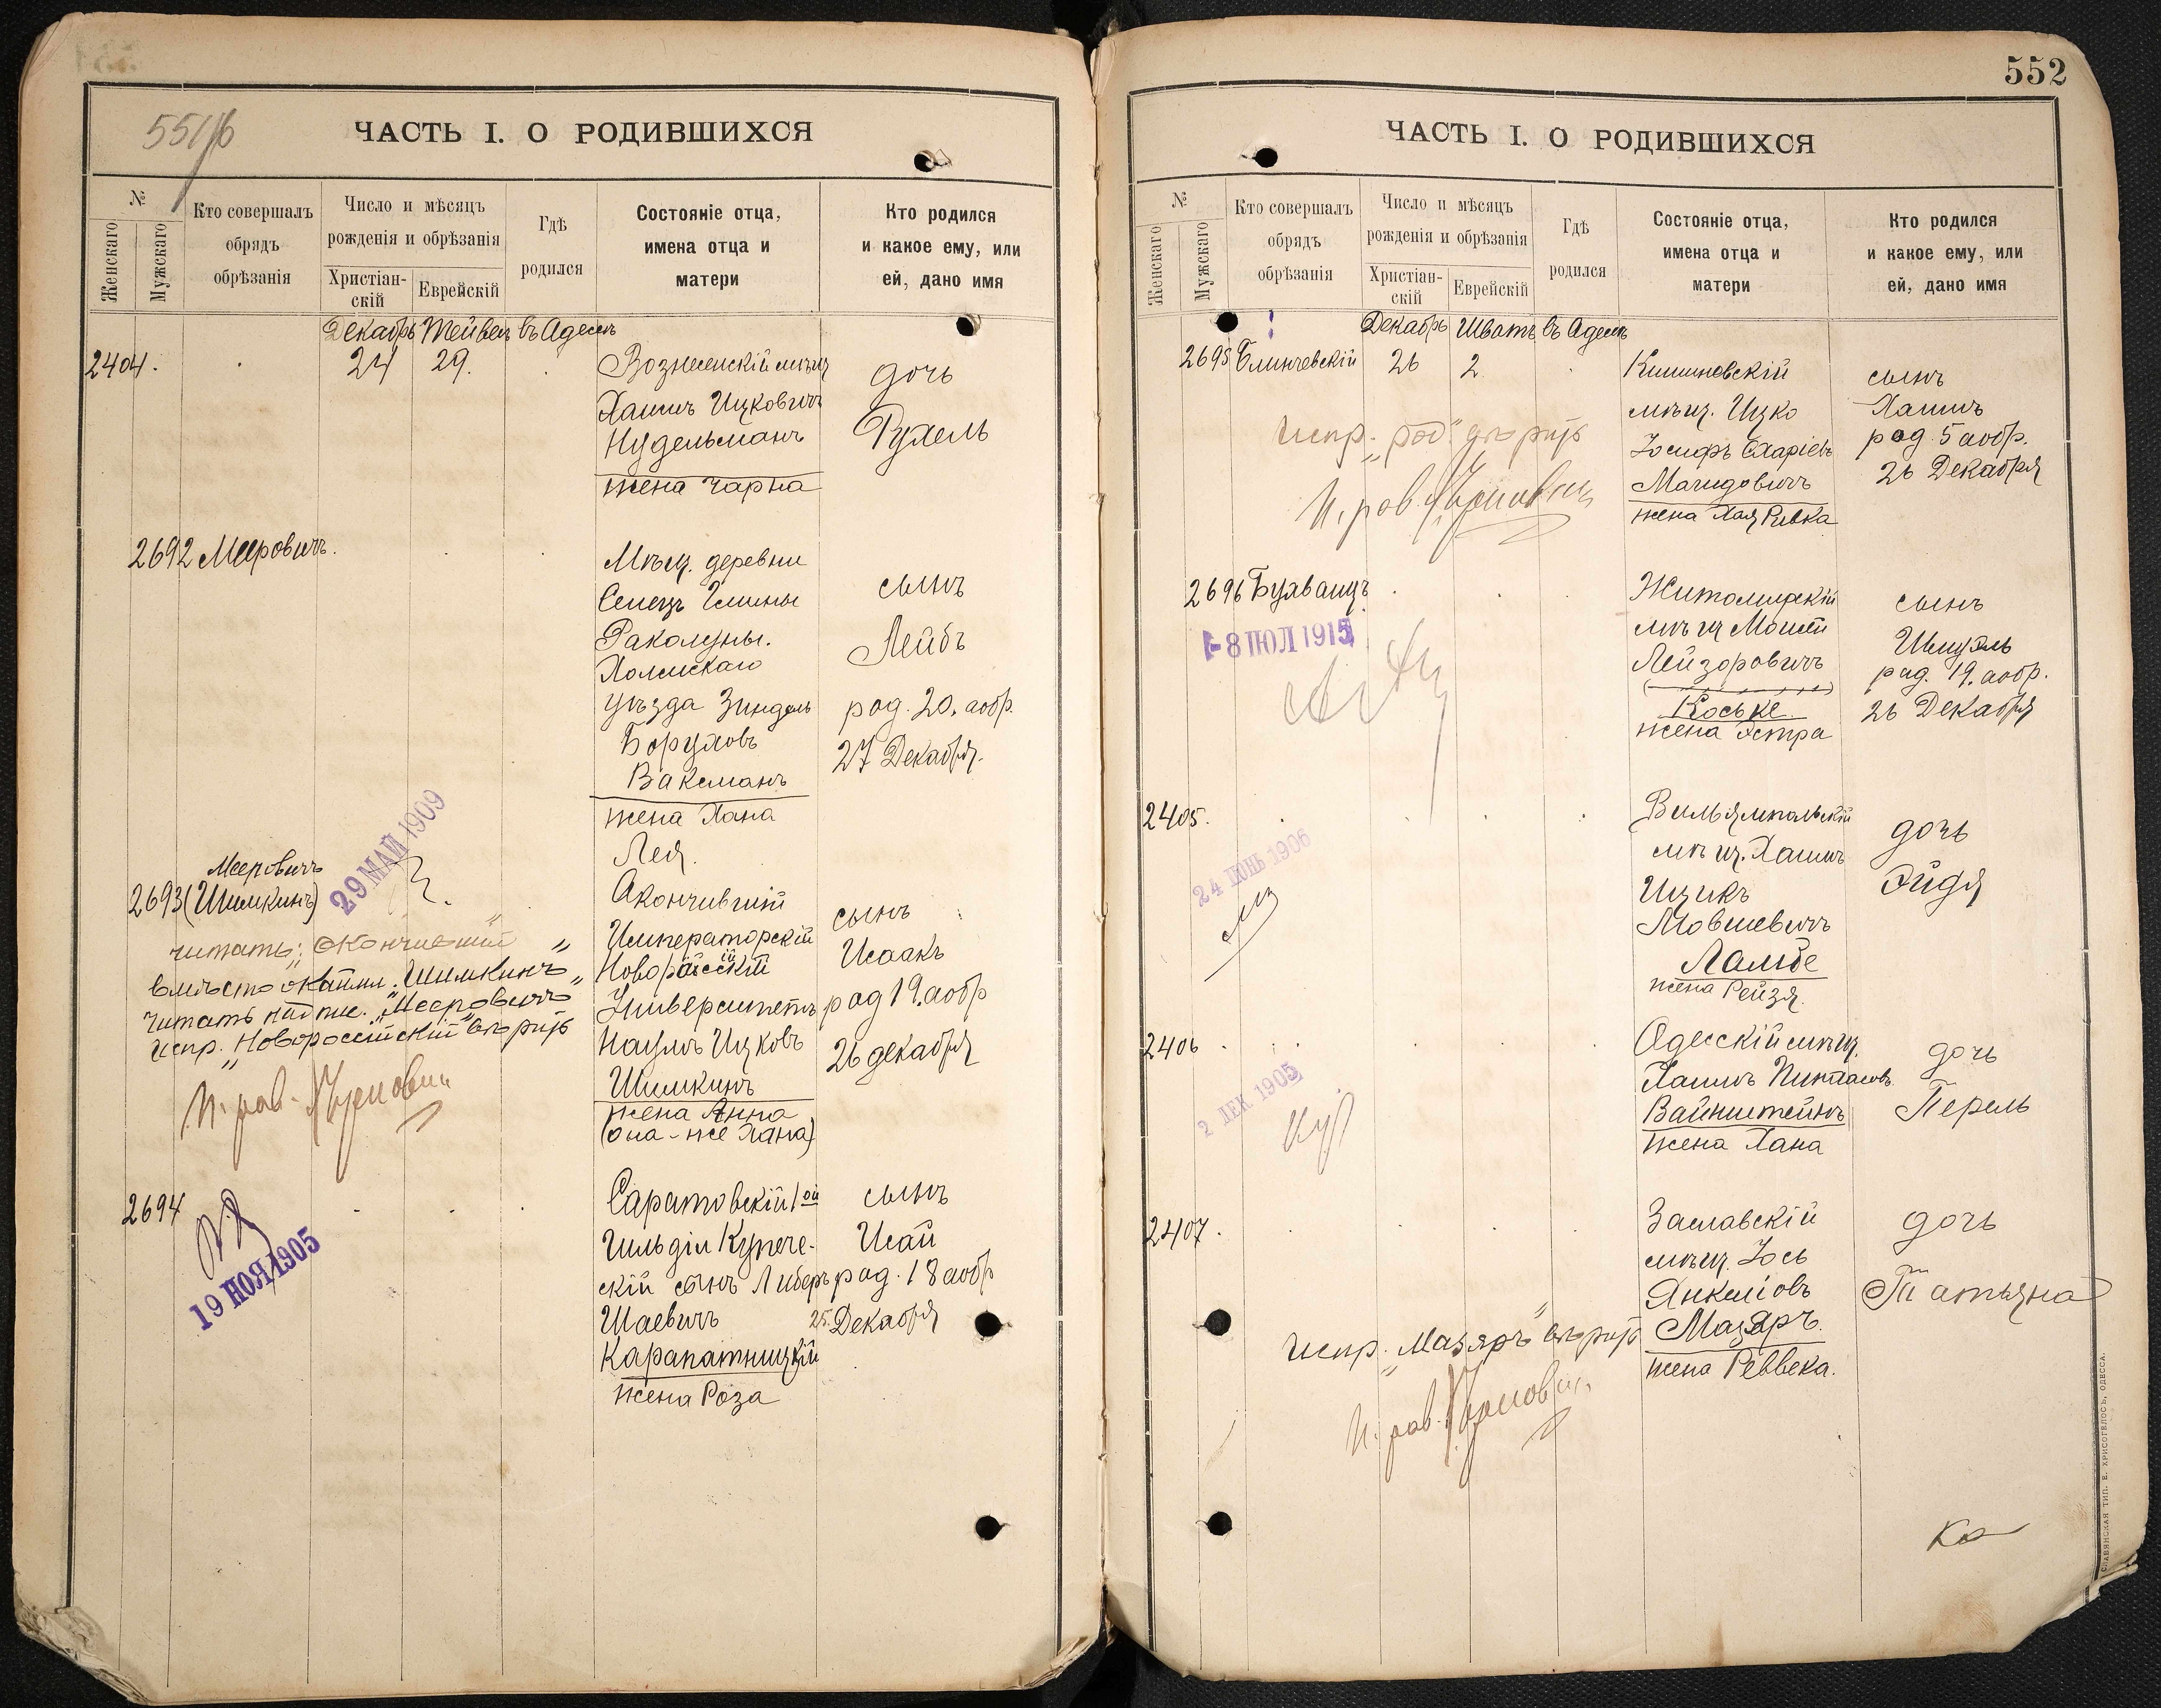 551/б
ЧАСТЬ I. О РОДИВШИХСЯ
№
Женскаго
Мужскаго
Кто совершалъ
обрядъ
обрѣзанія
Число и мѣсяцъ
рожденія и обрѣзанія
Христіан-
скій
Еврейскій
Гдѣ
родился
Состояніе отца,
имена отца и
матери
Кто родился
и какое ему, или
ей, дано имя
Декабрь Тейвец въ Адессъ
2404. 24 29. Вознесенскій мѣщ
Хаимъ Ицковичъ
Нудельманъ
жена Чарна
дочь
Рухель
2692 Мееровичъ.
Мѣщ. деревни
Сенецъ Гмины
Раколупы.
Холмскаго
уѣзда Зиндель
Боруховъ
Ваксманъ
жена Хана
Лея.
сынъ
Лейбъ
род. 20, а обр.
27 Декабря.
29 МАЙ 1909
Мееровичъ
2693 (Шимкинъ)
читать: „окончившій"
вмѣсто окайми. „Шимкинъ"
читать надпис. „Мееровичъ"
испр. „Новороссійскій" вѣрить
Акончившій
Императорскій
Новорассійскій
Университетъ
Наумъ Ицковъ
Шимкинъ
жена Анна
(она-же Хана)
сынъ
Исаакъ
род 19. а обр
26 декабря
2694
19 НОЯ 1905
Саратовскій 1ой
гильдіи Купече-
скій сынъ Либеръ
Шаевичъ
Карапатницкій
жена Роза
сынъ
Исай
род. 18 а обр
25. Декабря
552
ЧАСТЬ I. О РОДИВШИХСЯ
№
Женскаго
Мужскаго
Кто совершалъ
обрядъ
обрѣзанія
Число и мѣсяцъ
рожденія и обрѣзанія
Христіан-
скій
Еврейскій
Гдѣ
родился
Состояніе отца,
имена отца и
матери
Кто родился
и какое ему, или
ей, дано имя
Декабрь Шватъ въ Адессъ
2695 Блинчевскій 26 2
Кишиневскій
мѣщ. Ицко
Іосифъ Схаріевъ
Магидовичъ
жена Хая Ривка
сынъ
Хаимъ
род 5 а обр.
26 Декабря
испр. „род." вѣрить
2696 Бухванцъ
8 ІЮЛ 1915
Житомирскій
мѣщ Мошти
Лейзоровичъ
Коське.
жена Эстра
сынъ
Шмуэль
род. 19. а обр.
26 Декабря
2405.
24 ІЮНЬ 1906
Вильямпольскій
мѣщ. Хаимъ
Ицикъ
Мовшевичъ
Ламбе
жена Рейзя.
дочь
Эйдя
2406
2 ДЕК. 1905
Одесскій мѣщ.
Хаимъ Пинхасовъ
Вайнштейнъ
жена Хана
дочь
Перель
2407.
Заславскій
мѣщ. Іось
Янкеліовъ
Мазяръ.
жена Реввека.
дочь
Татьяна
испр. „Мазяръ" вѣрить
СЛАВЯНСКАЯ ТИП. Е. ХРИСОГЕЛОСЪ, ОДЕССА.